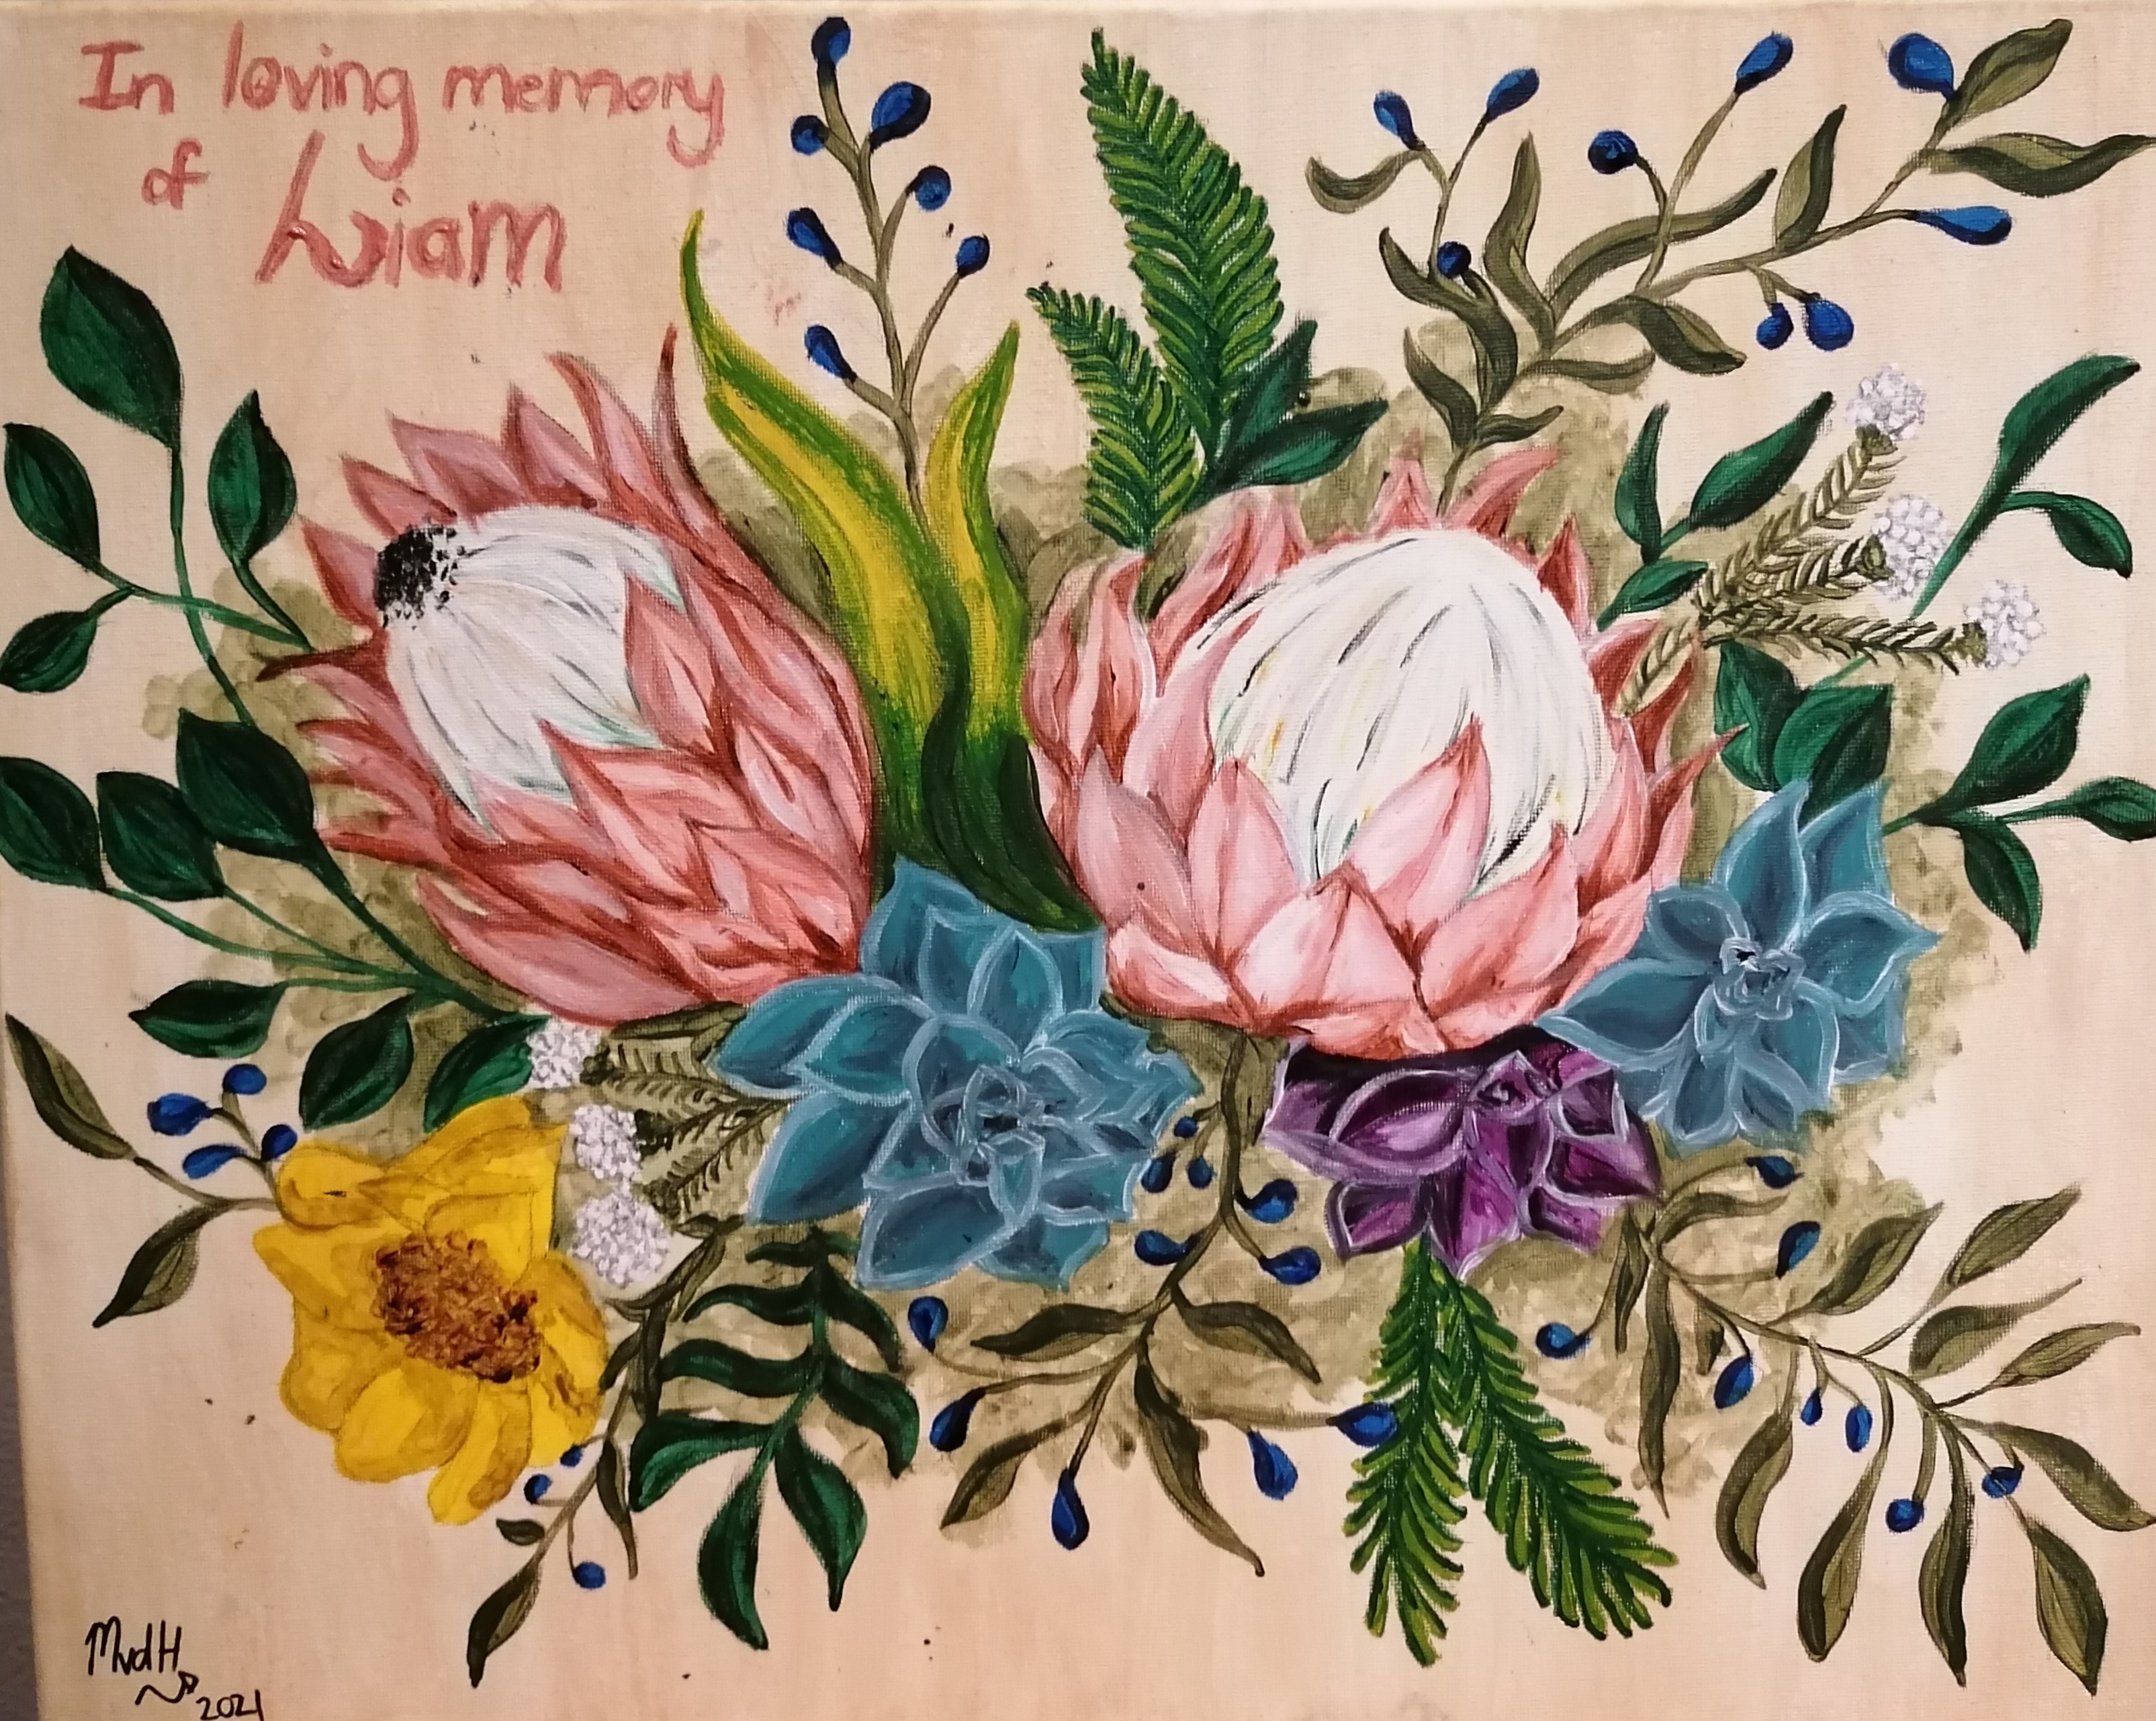 In loving memory
of Liam
MvdH
2021